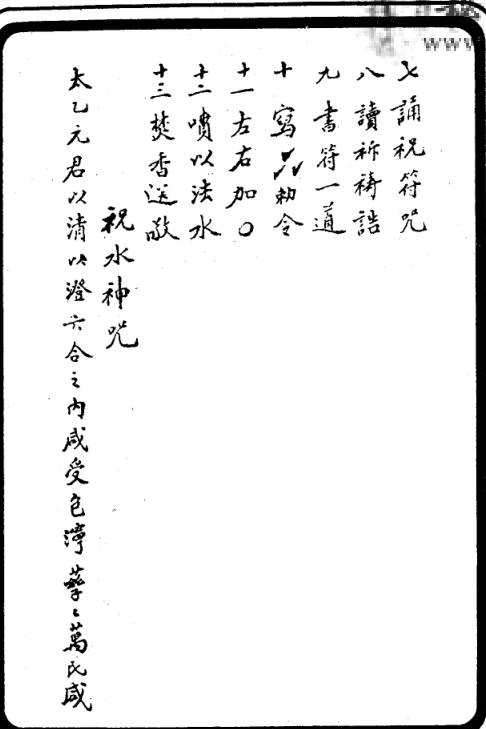 七誦祝符咒
八讀祈禱誥
九書符一道
十寫勅令
十一左右加〇
十二噴以法水
十三焚香送敬
祝水神咒
太乙元君以清以澄六合之內咸受色萬民咸
www